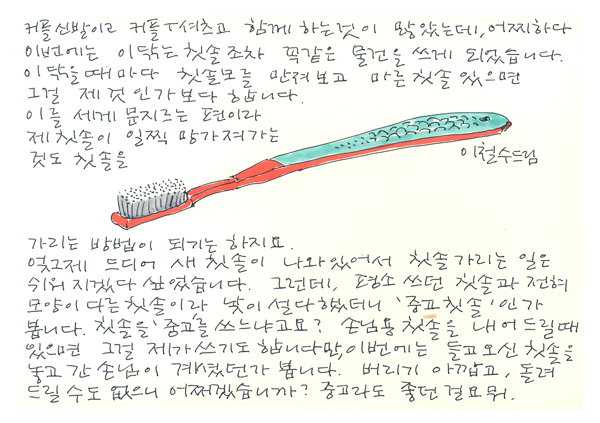 커플신발이고 커플T셔츠고 함께하는것이 많았는데, 어찌하다
이번에는 이닦는 칫솔조차 꼭같은 물건을 쓰게 되었습니다.
이닦을때마다 칫솔모를 만져보고 마른칫솔 있으면
그걸 제것인가보다 합니다.
이를 세게 문지르는 편이라
제칫솔이 일찍 망가져가는
것도 칫솔을
이철수드림
가리는 방법이 되기는 하지요.
엊그제 드디어 새칫솔이 나와있어서 칫솔가리는 일은
쉬워지겠다 싶었습니다. 그런데, 평소쓰던 칫솔과 전혀
모양이다른칫솔이라, 낯이 설다 했더니 '중고칫솔'인가
봅니다. 칫솔을 '중고'를 쓰느냐고요? 손님용칫솔을 내어드릴때
있으면 그걸 제가쓰기도합니다만, 이번에는 들고오신 칫솔을
놓고 간 손님이 계셨던가 봅니다. 버리기 아깝고, 돌려
드릴수도 없으니 어쩌겠습니까? 중고라도 좋던걸요뭐.